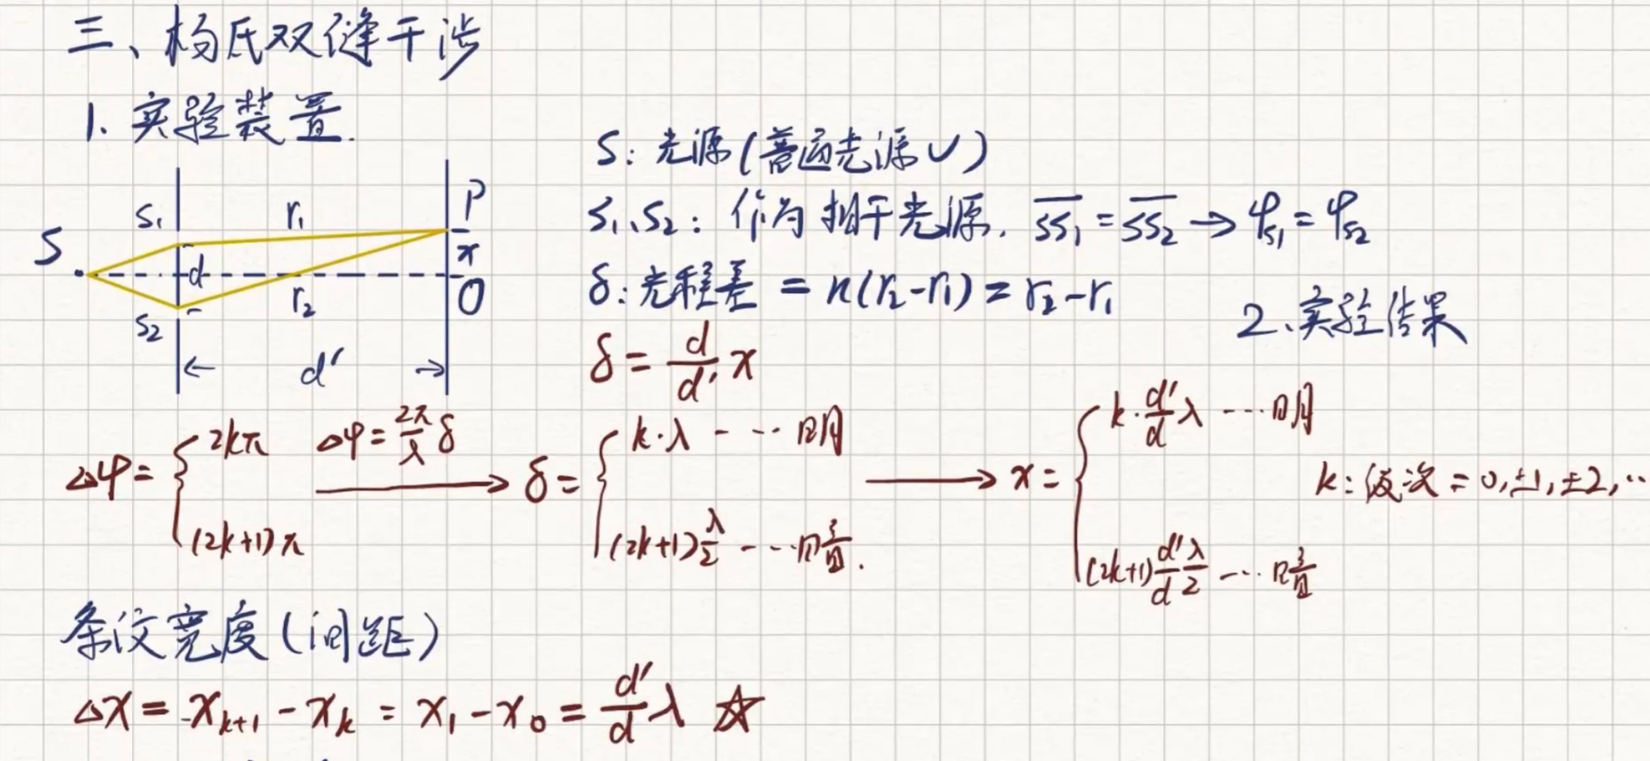 三、杨氏双缝干涉
1. 实验装置.
S s₁ s₂ d r₁ r₂ P x O d′
S: 光源(普通光源∪)
S₁、S₂: 作为相干光源. \overline{SS₁} = \overline{SS₂} → φ_{S₁} = φ_{S₂}
δ: 光程差 = n(r₂-r₁) = r₂-r₁
2、实验结果
δ = \frac{d}{d′} x
Δφ = { 2kπ ; (2k+1)π \xrightarrow{Δφ = \frac{2π}{λ} δ} δ = { k·λ --- 明 ; (2k+1)\frac{λ}{2} --- 暗. ⟶ x = { k·\frac{d′}{d}λ --- 明 ; (2k+1)\frac{d′}{d}\frac{λ}{2} --- 暗 k: 级次 = 0, ±1, ±2, ··
条纹宽度(间距)
Δx = x_{k+1} - x_k = x₁ - x₀ = \frac{d′}{d} λ ☆